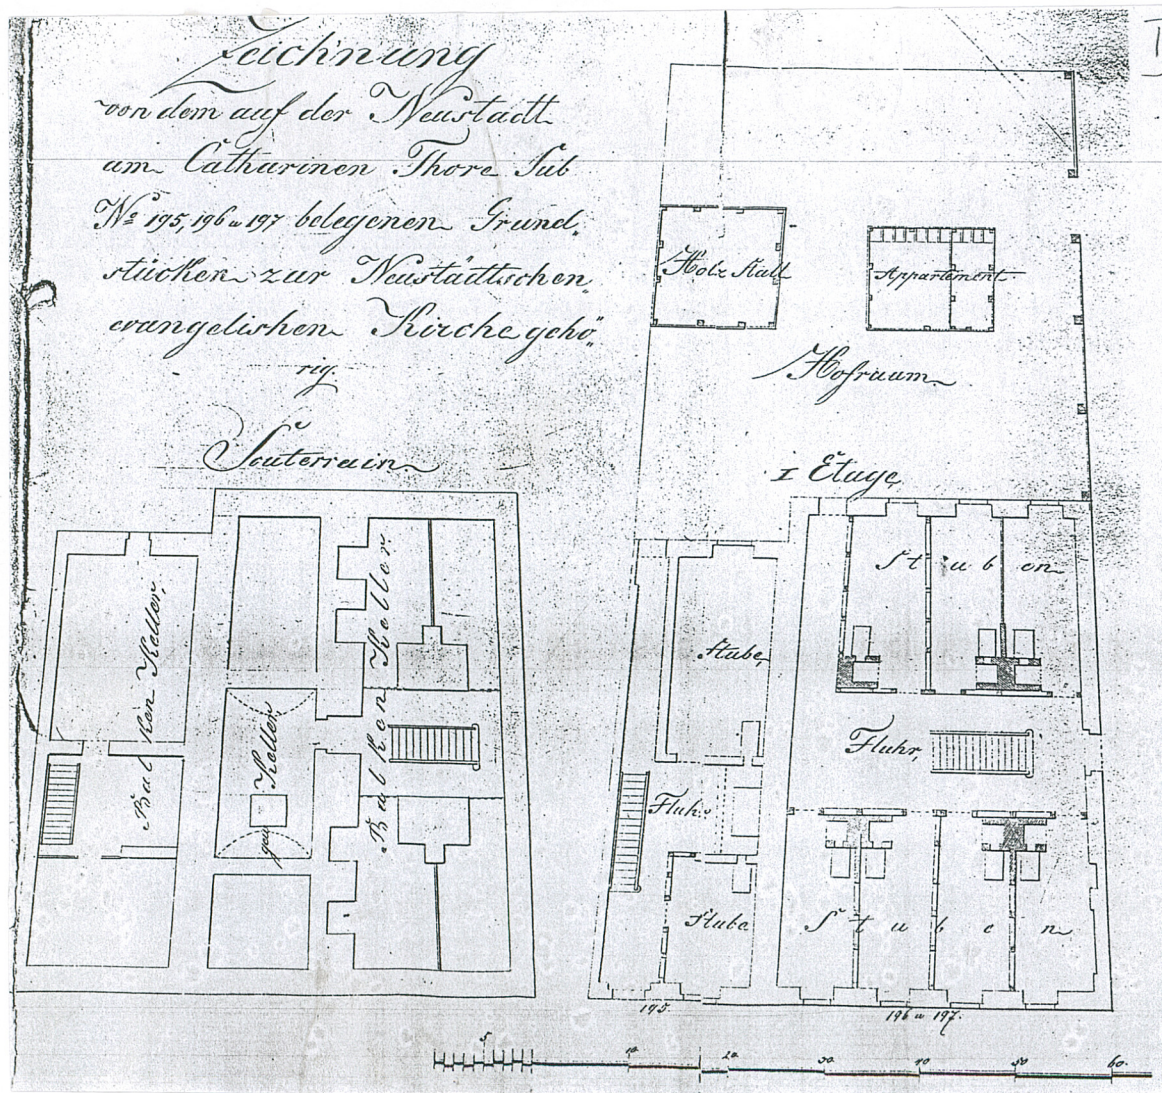 Zeichnung
von dem auf der Neustadt
am Catharinen Thore Sub
No 195, 196 u 197 belegenen Grund,
stücken zur Neustädtschen
evangelischen Kirche gehö„
rig.
Souterrain
Balken Keller,
Keller
Balken Keller
Holz Stall
Appartement
Hofraum
I Etage
Stuben
Stube
Fluhr,
Fluhr
Stube
Stuben
195.
196 u 197.
5 10 20 30 40 50 60